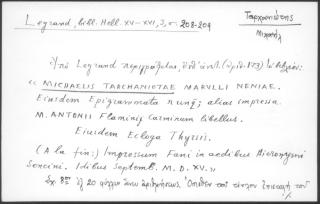 Legrand, Bibl. Hell. XV-XVI, 3, σ. 208-209
Ταρχανιώτης
Μιχαήλ
Ὑπὸ Legrand περιγράφεται, ὑπ' ἀριθ. (ἀριθ. 173)
« MICHAELIS TARCHANIOTAE MARULLI NENIAE.
Eiusdem Epigrammata nunq; alias impressa.
M. ANTONII Flaminij Carminum libellus.
Eiusdem Ecloga Thyrsis.
(A la fin:) Impressum Fani in aedibus Hieronymi
Soncini. Idibus Septemb. M. D. XV. »
Σχ. 8ον ἐξ 20 φύλλων ἄνευ ἀριθμήσεως. Ὄπισθεν τοῦ τίτλου ἐπιγραφὴ τοῦ